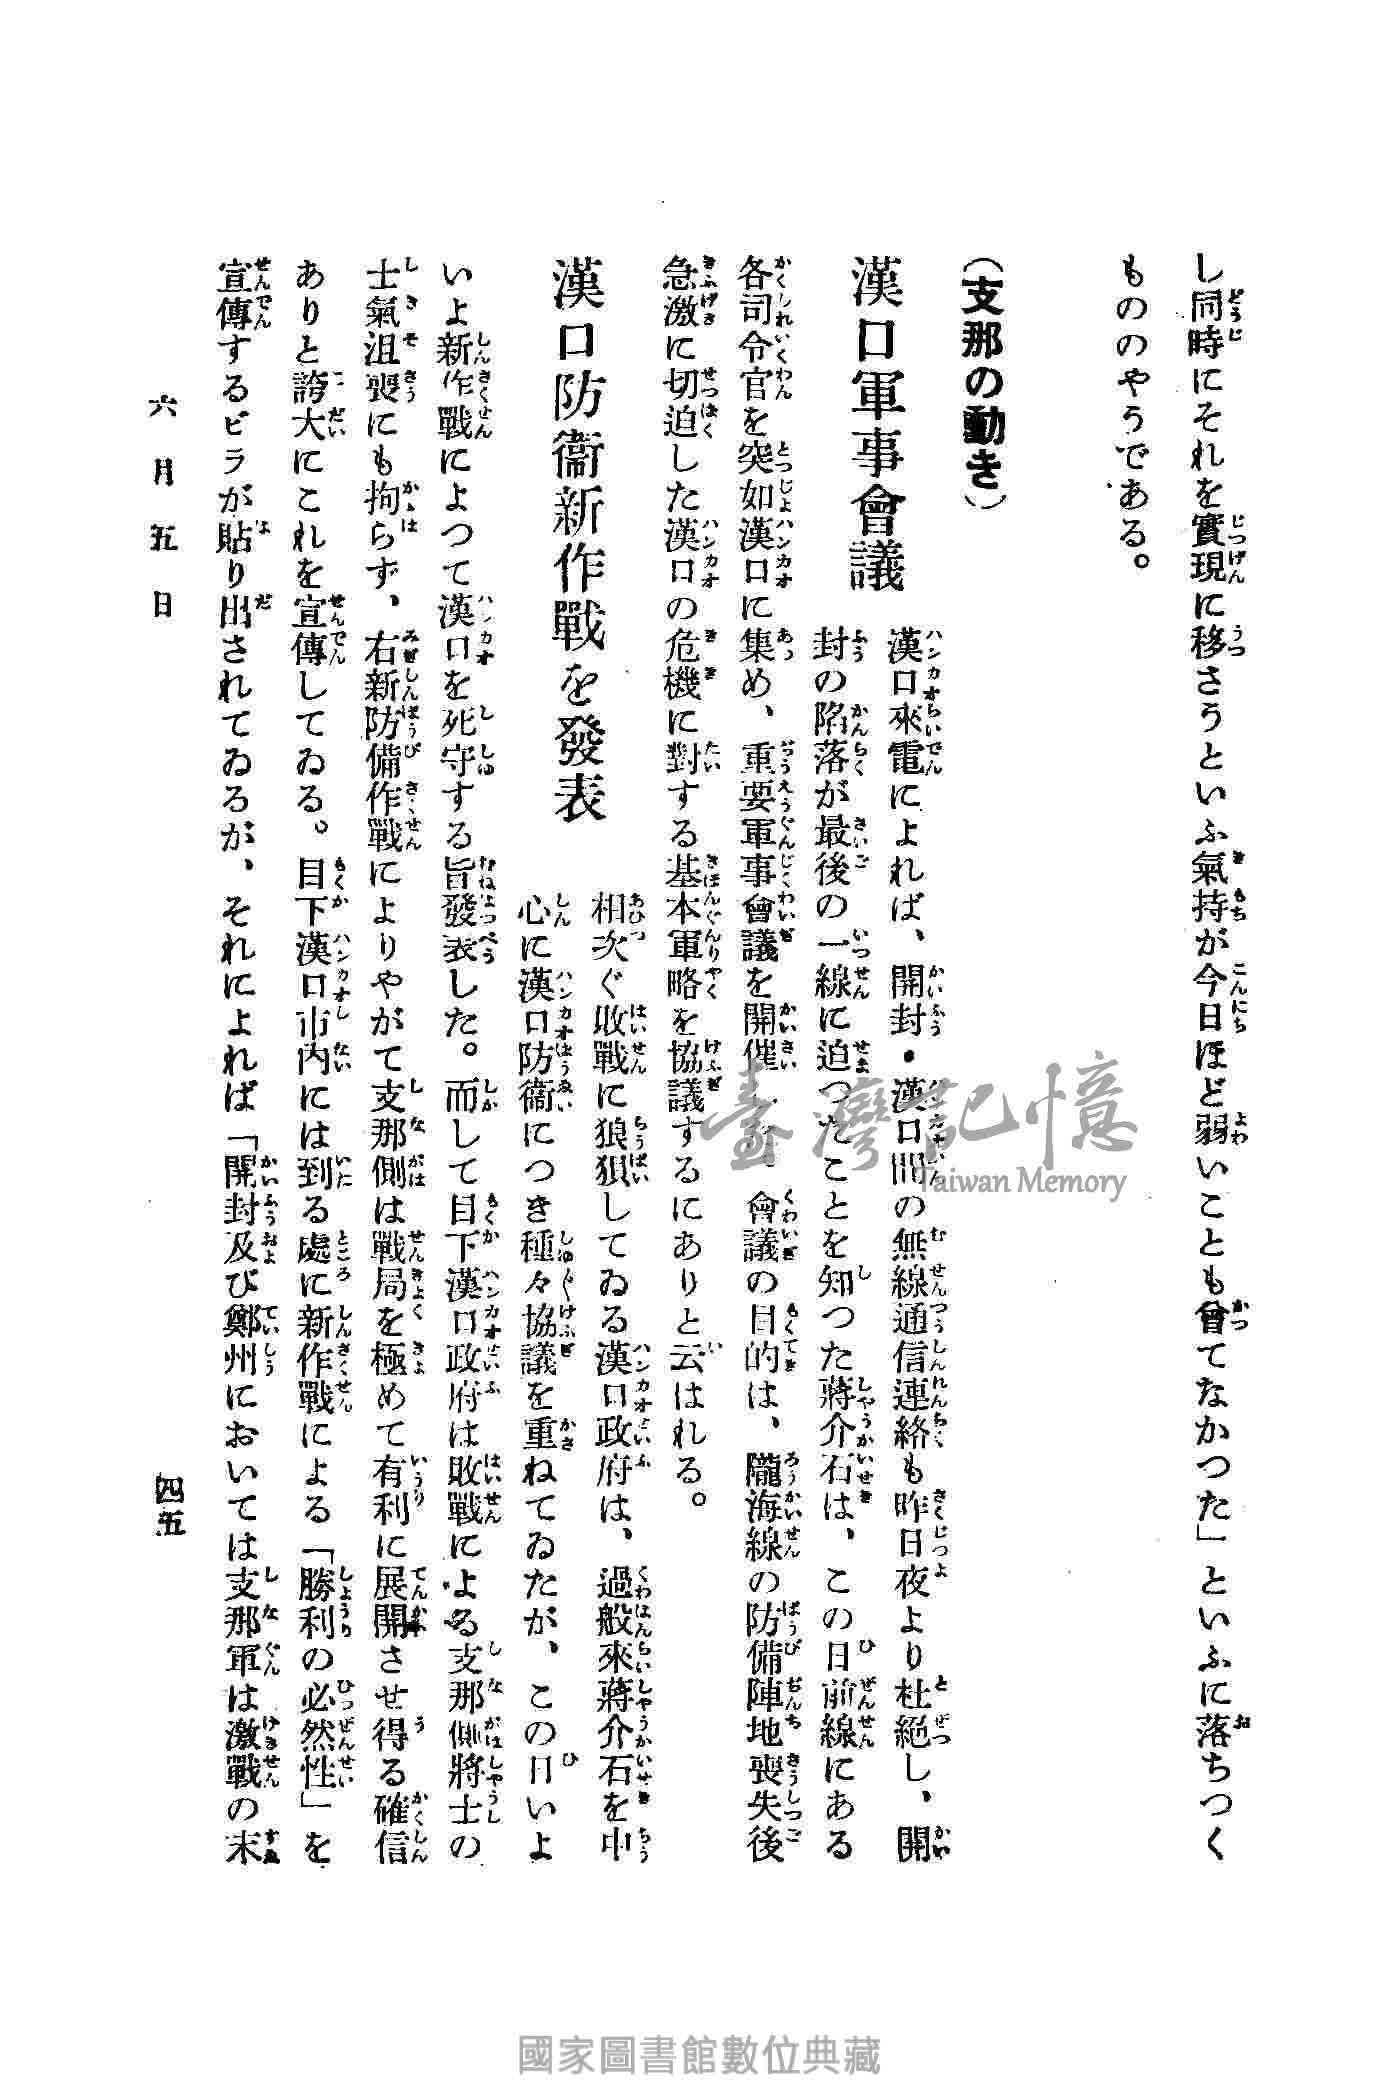 し同時にそれを實現に移さうといふ氣持が今日ほど弱いことも曾てなかつた」といふに落ちつく
もののやうである。
（支那の動き）
漢口軍事會議
漢口來電によれば、開封・漢口間の無線通信連絡も昨日夜より杜絕し、開
封の陷落が最後の一線に迫つたことを知つた蔣介石は、この日前線にある
各司令官を突如漢口に集め、重要軍事會議を開催 會議の目的は、隴海線の防備陣地喪失後
急激に切迫した漢口の危機に對する基本軍略を協議するにありと云はれる。
漢口防衞新作戰を發表
相次ぐ敗戰に狼狽してゐる漢口政府は、過般來蔣介石を中
心に漢口防衞につき種々協議を重ねてゐたが、この日いよ
いよ新作戰によつて漢口を死守する旨發表した。而して目下漢口政府は敗戰による支那側將士の
士氣沮喪にも拘らず、右新防備作戰によりやがて支那側は戰局を極めて有利に展開させ得る確信
ありと誇大にこれを宣傳してゐる。目下漢口市內には到る處に新作戰による「勝利の必然性」を
宣傳するビラが貼り出されてゐるが、それによれば「開封及び鄭州においては支那軍は激戰の末
六月五日
四五
臺灣記憶
Taiwan Memory
國家圖書館數位典藏